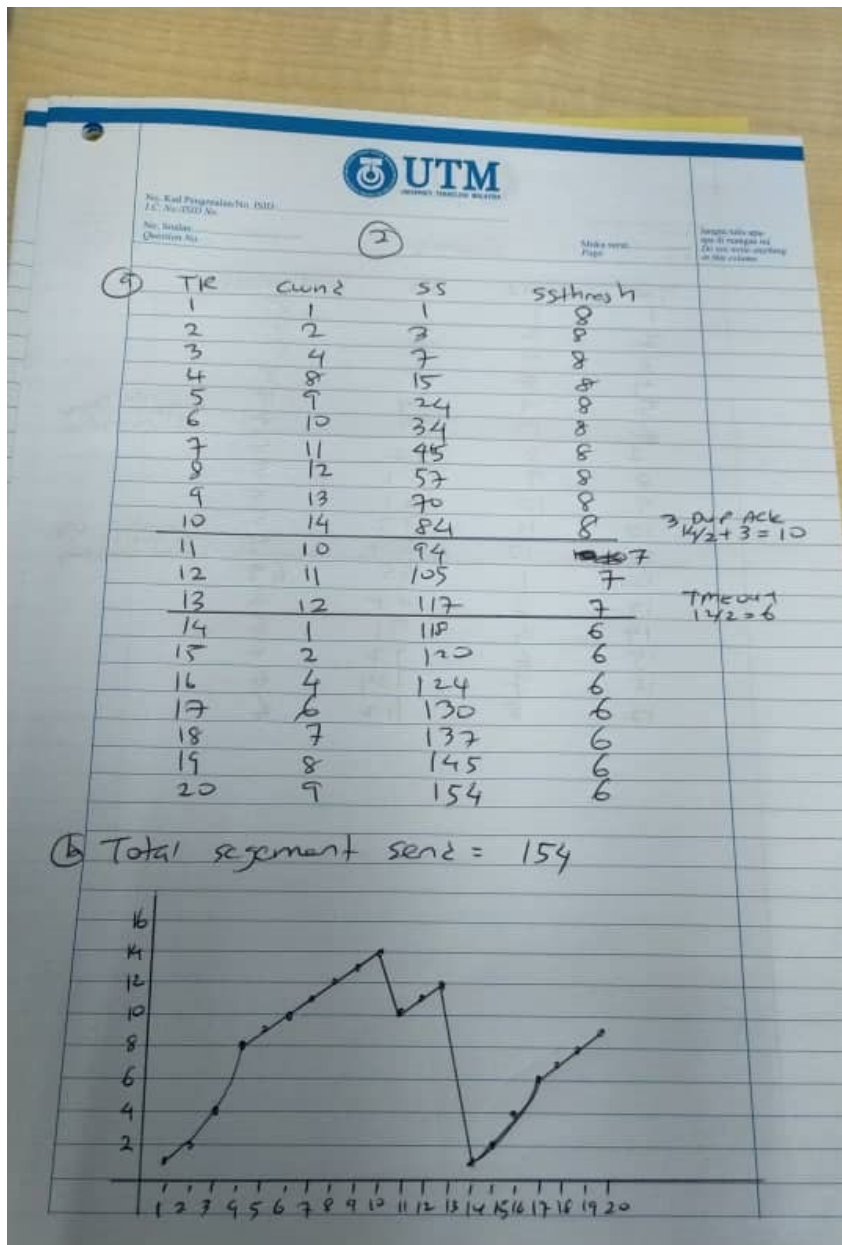 UTM
UNIVERSITI TEKNOLOGI MALAYSIA
No. Kad Pengenalan/No. ISID
I.C. No./ISID No.
No. Soalan
Question No.
2
Muka surat
Page
Jangan tulis apa-
apa di ruangan ini
Do not write anything
in this column
a TR cwnd SS ssthresh
1 1 1 8
2 2 3 8
3 4 7 8
4 8 15 8
5 9 24 8
6 10 34 8
7 11 45 8
8 12 57 8
9 13 70 8
10 14 84 8 3 Dup Ack
14/2 + 3 = 10
11 10 94 7
12 11 105 7
13 12 117 7 Tmeout
12/2 = 6
14 1 118 6
15 2 120 6
16 4 124 6
17 6 130 6
18 7 137 6
19 8 145 6
20 9 154 6
b Total segement send = 154
16
14
12
10
8
6
4
2
1 2 3 4 5 6 7 8 9 10 11 12 13 14 15 16 17 18 19 20